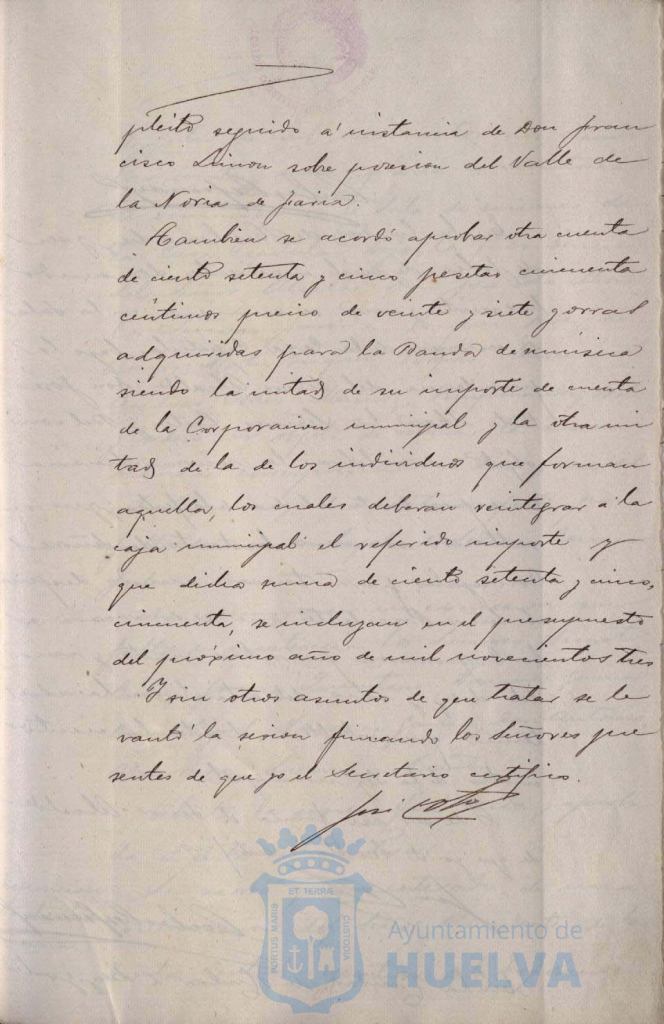 pleito seguido á instancia de Don Fran
cisco Limon sobre posesion del Valle de
la Noria de faria.
Tambien se acordó aprobar otra cuenta
de ciento setenta y cinco pesetas cincuenta
céntimos precio de veinte y siete gorras
adquiridas para la Banda de música
siendo la mitad de su importe de cuenta
de la Corporacion municipal y la otra mi
tad de la de los individuos que forman
aquella, los cuales deberán reintegrar á la
caja municipal el referido importe y
que dicha suma de ciento setenta y cinco,
cincuenta, se incluyan en el presupuesto
del próximo año de mil novecientos tres
Y sin otros asuntos de que tratar se le
vantó la sesion firmando los Señores pre
sentes de que yo el Secretario certifico.
José
ET TERRÆ
PORTUS MARIS
CUSTODIA
Ayuntamiento de
HUELVA